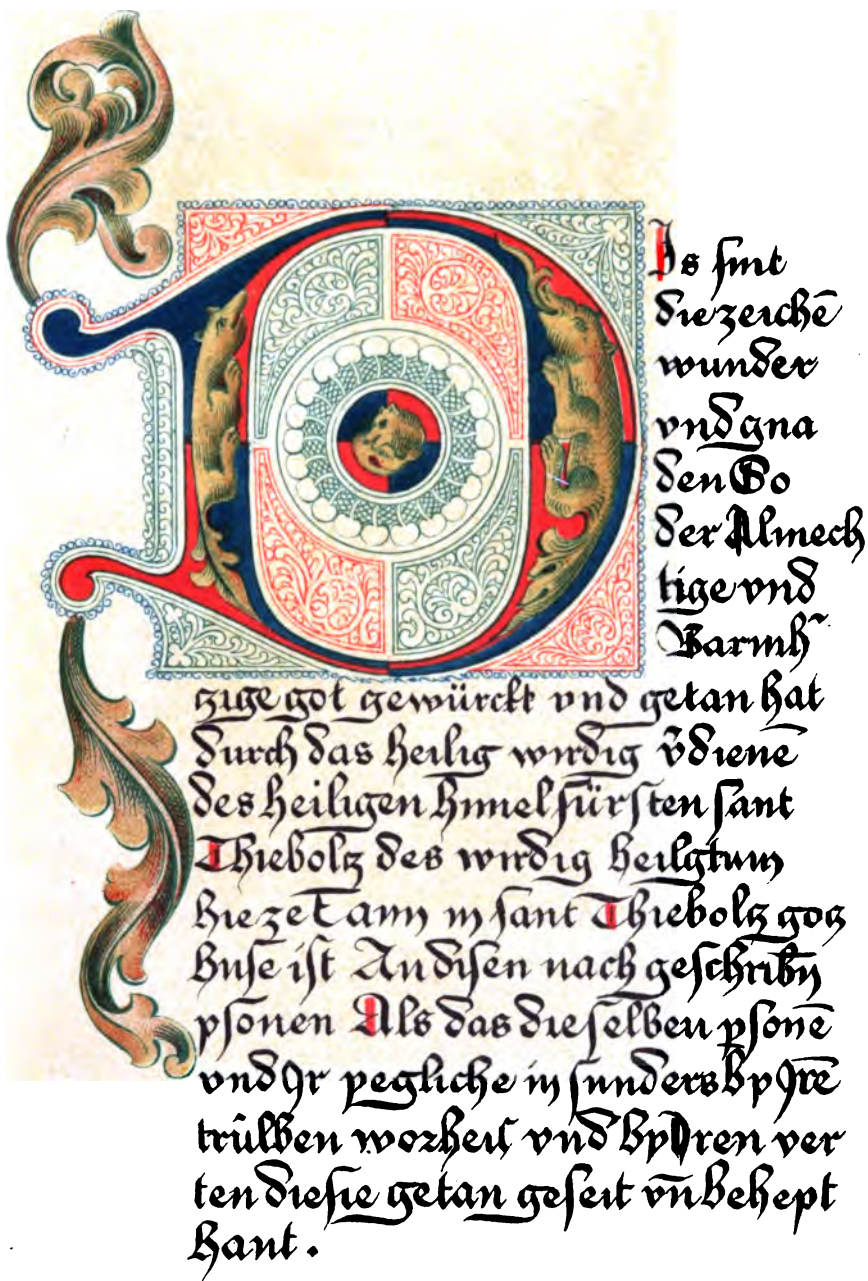 Dis sint
die zeichē
wunder
vnd gna
den So
der Almech
tige vnd
Barmh᷑
zige got gewürckt vnd getan hat
durch das heilig wirdig v̄dienē
des heiligen himelfürsten sant
Thiebolz des wirdig heilgtum
hie ze Tann in sant Thiebolz goz
huse ist An disen nach geschribn̄
psonen Als das die selben psonē
vnd Ir yegliche in sunders by Irē
trüwen worheit vnd by Iren
ten die sie getan geseit vn̄ behept
hant.